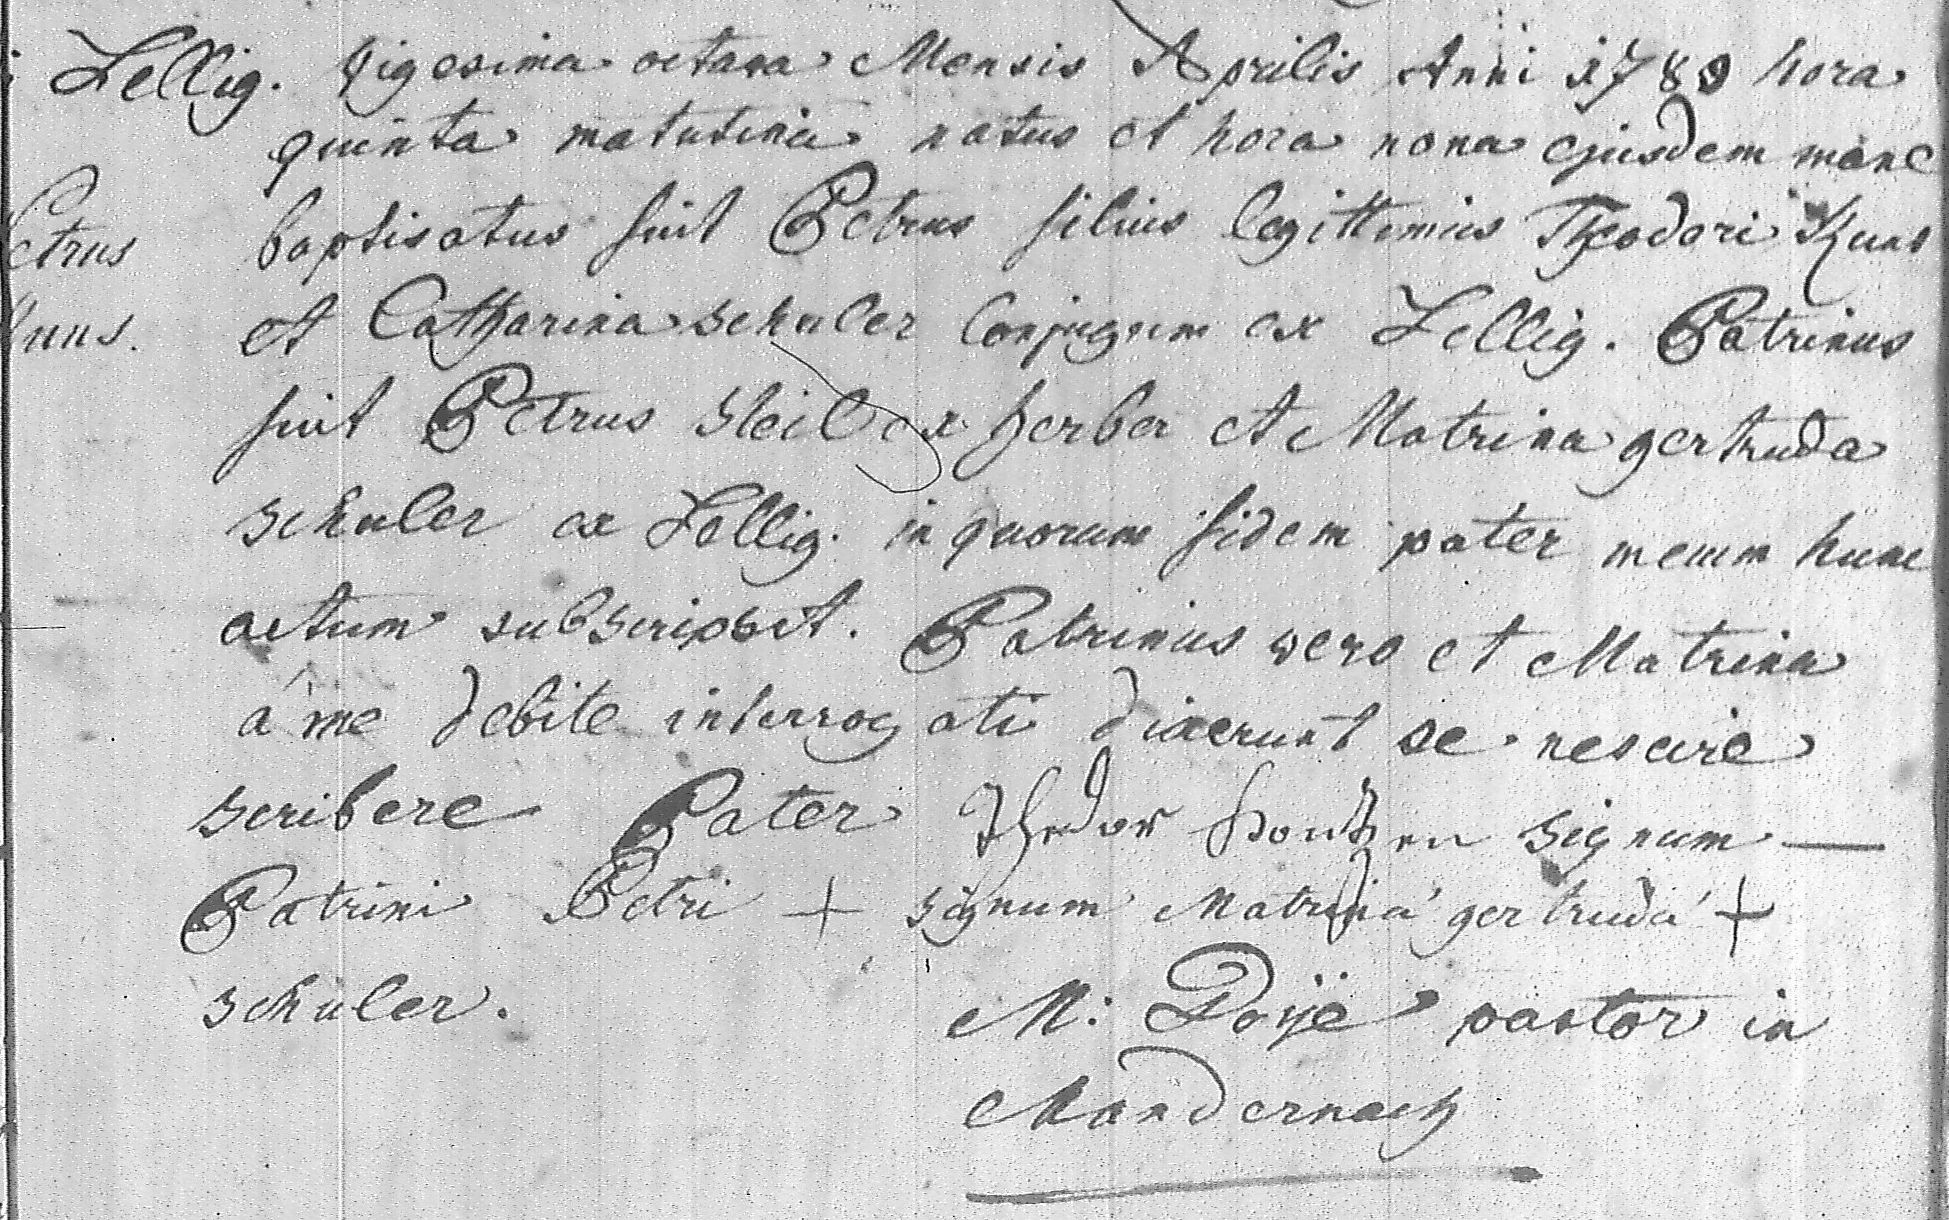 Lellig. vigesima octava Mensis Aprilis Anni 1789 hora
quinta matutina natus et hora nona ejusdem mane
etrus baptisatus fuit Petrus filius legittimus Theodori Kuns
uns. et Catharina schuler Conjugum ex Lellig. Patrinus
fuit Petrus Steil ex herber et Matrina gertruda
schuler ex Lellig. in quorum fidem pater mecum hunc
actum subscripsit. Patrinus vero et Matrina
a me debite interrogati dixerunt se nescire
scribere Pater Thedor signum —
Patrini Petri + signum Matrina gertruda +
schuler.
M: Poije pastor in
Mandernach